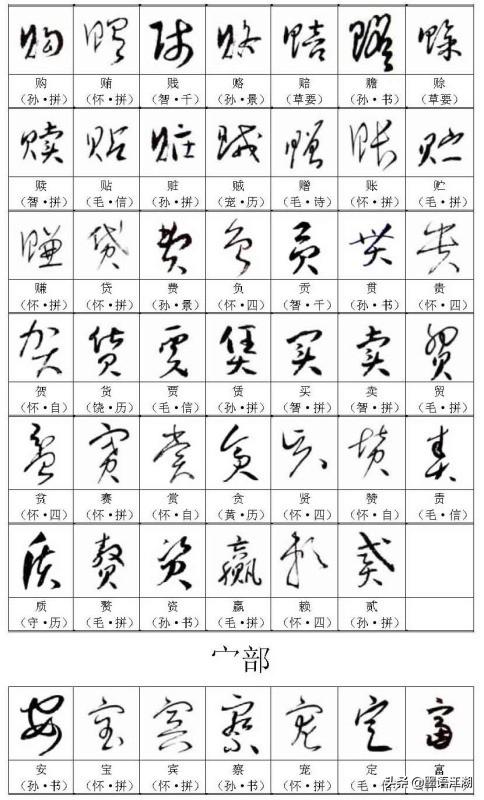 购 贿 贱 赂 赔 赡 赊
（孙·拼） （怀·拼） （智·千） （孙·景） （草要） （孙·书） （草要）
赎 贴 赃 贼 赠 账 贮
（智·拼） （毛·信） （孙·拼） （宠·历） （毛·诗） （怀·拼） （毛·拼）
赚 贷 费 负 贡 贯 贵
（怀·拼） （怀·拼） （孙·景） （怀·四） （智·千） （孙·书） （怀·四）
贺 货 贾 赁 买 卖 贸
（怀·自） （饶·历） （毛·信） （孙·拼） （智·拼） （智·拼） （毛·拼）
贫 赛 赏 贪 贤 赞 责
（怀·四） （怀·拼） （怀·自） （黄·历） （怀·四） （怀·自） （毛·信）
质 赘 资 赢 赖 贰
（守·历） （毛·拼） （孙·书） （毛·拼） （怀·四） （孙·拼）
宀部
安 宝 宾 察 宠 定 富
（孙·书） （怀·拼） （孙·拼） （孙·书） （怀·拼）